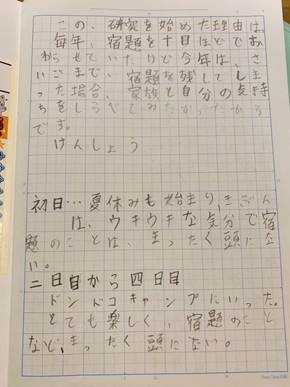 この、研究を始めた理由は、
毎年、宿題を十日ほどでお
わらせていたけど今年は、さ
いごまで、宿題を残してしま
った場合、家族と自分の気持
ちをしらべてみたかったから
です。
けんしょう
初日…夏休みも始まり、きげん
は、ウキウキな気分で宿
題のことは、まったく頭にな
い。
二日目から四日目
ドンドコキャンプにいった。
とても楽しく、宿題のこと
など、まったく頭にない。